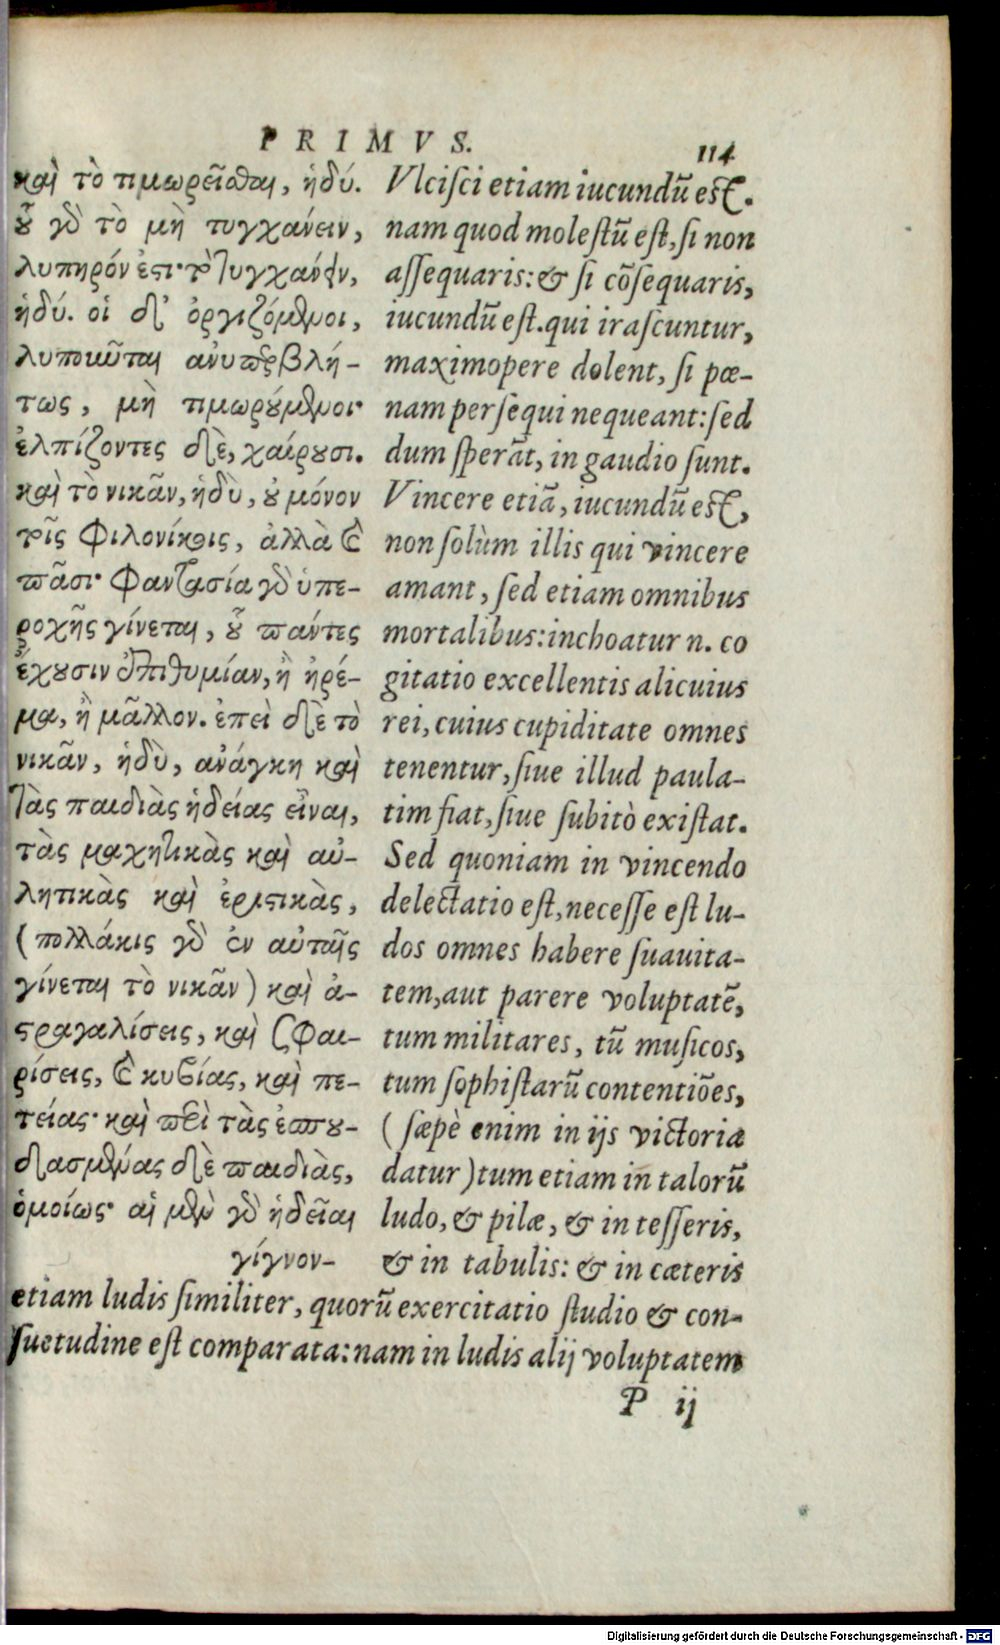 PRIMVS. 114
καὶ τὸ τιμωρεῖσθαι, ἡδύ.
οὗ γὸ τὸ μὴ τυγχάνειν,
λυπηρόν ἐστι· τὸ τυγχάνειν,
ἡδύ. οἱ δ' ὀργιζόμενοι,
λυποιῦται ἀνυπερβλή-
τως, μὴ τιμωρούμενοι·
ἐλπίζοντες δὲ, χαίρουσι.
καὶ τὸ νικᾶν, ἡδὺ, οὐ μόνον
τοῖς φιλονίκοις, ἀλλὰ καὶ
πᾶσι· φαντασία γὸ ὑπε-
ροχῆς γίνεται, οὗ πάντες
ἔχουσιν ἐπιθυμίαν, ἢ ἠρέ-
μα, ἢ μᾶλλον. ἐπεὶ δὲ τὸ
νικᾶν, ἡδὺ, ἀνάγκη καὶ
τὰς παιδιὰς ἡδείας εἶναι,
τὰς μαχητικὰς καὶ αὐ-
λητικὰς καὶ ἐριστικὰς,
(πολλάκις γὸ ἐν αὐταῖς
γίνεται τὸ νικᾶν) καὶ ἀ-
στραγαλίσεις, καὶ σφαι-
ρίσεις, καὶ κυβίας, καὶ πε-
τείας· καὶ περὶ τὰς ἐσπου-
δασμένας δὲ παιδιὰς,
ὁμοίως· αἱ μὲν γὸ ἡδεῖαι
γίγνον-
Vlcisci etiam iucundũ est.
nam quod molestũ est, si non
assequaris: & si cõsequaris,
iucundũ est. qui irascuntur,
maximopere dolent, si pœ-
nam persequi nequeant: sed
dum sperãt, in gaudio sunt.
Vincere etiã, iucundũ est,
non solùm illis qui vincere
amant, sed etiam omnibus
mortalibus: inchoatur n. co
gitatio excellentis alicuius
rei, cuius cupiditate omnes
tenentur, siue illud paula-
tim fiat, siue subitò existat.
Sed quoniam in vincendo
delectatio est, necesse est lu-
dos omnes habere suauita-
tem, aut parere voluptatẽ,
tum militares, tũ musicos,
tum sophistarũ contentiões,
(sæpè enim in ijs victoria
datur) tum etiam in talorũ
ludo, & pilæ, & in tesseris,
& in tabulis: & in cæteris
etiam ludis similiter, quorũ exercitatio studio & con-
suetudine est comparata: nam in ludis alij voluptatem
P ij
Digitalisierung gefördert durch die Deutsche Forschungsgemeinschaft - DFG